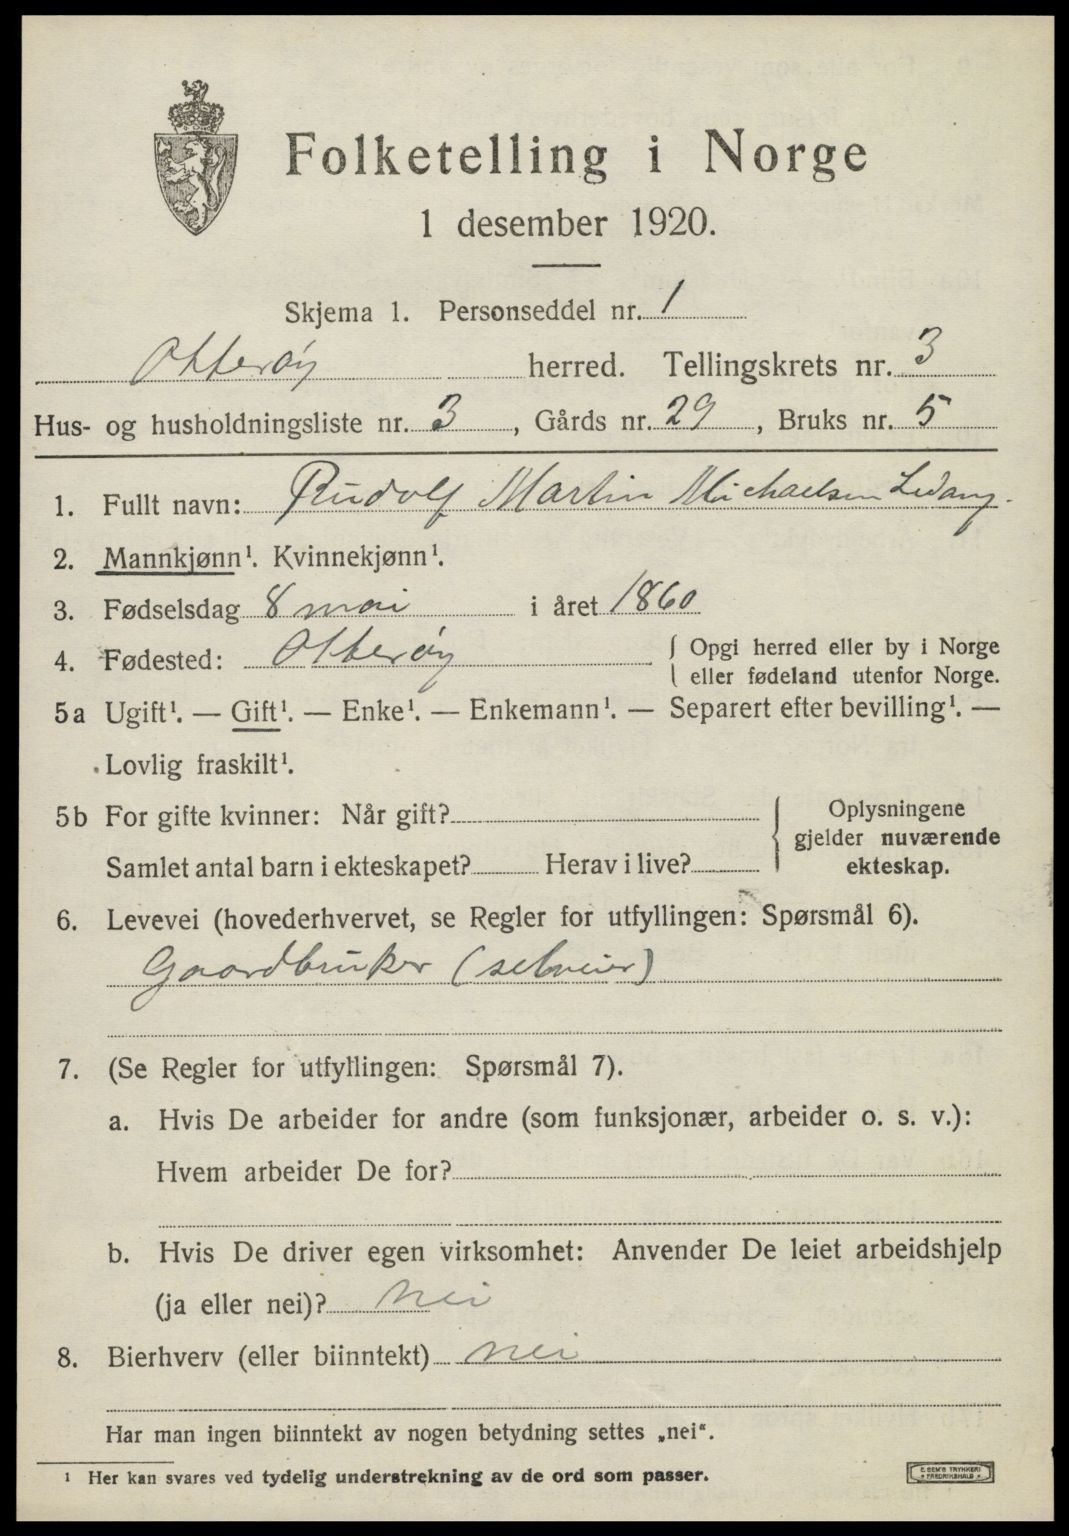 Folketelling i Norge
1 desember 1920.
Skjema 1. Personseddel nr. 1
Otterøy herred. Tellingskrets nr. 3
Hus- og husholdningsliste nr. 3, Gårds nr. 29, Bruks nr. 5
1. Fullt navn: Rudolf Martin Michaelsen Ledang.
2. Mannkjønn¹. Kvinnekjønn¹.
3. Fødselsdag 8 mai i året 1860
4. Fødested: Otterøy { Opgi herred eller by i Norge
eller fødeland utenfor Norge.
5a Ugift¹. — Gift¹. — Enke¹. — Enkemann¹. — Separert efter bevilling¹. —
Lovlig fraskilt¹.
5b For gifte kvinner: Når gift? { Oplysningene
gjelder nuværende
Samlet antal barn i ekteskapet? Herav i live? ekteskap.
6. Levevei (hovederhvervet, se Regler for utfyllingen: Spørsmål 6).
Gaardbruker (selveier)
7. (Se Regler for utfyllingen: Spørsmål 7).
a. Hvis De arbeider for andre (som funksjonær, arbeider o. s. v.):
Hvem arbeider De for?
b. Hvis De driver egen virksomhet: Anvender De leiet arbeidshjelp
(ja eller nei)? nei
8. Bierhverv (eller biinntekt) nei
Har man ingen biinntekt av nogen betydning settes „nei“.
¹ Her kan svares ved tydelig understrekning av de ord som passer.
E. SEM'S TRYKKERI
FREDRIKSHALD